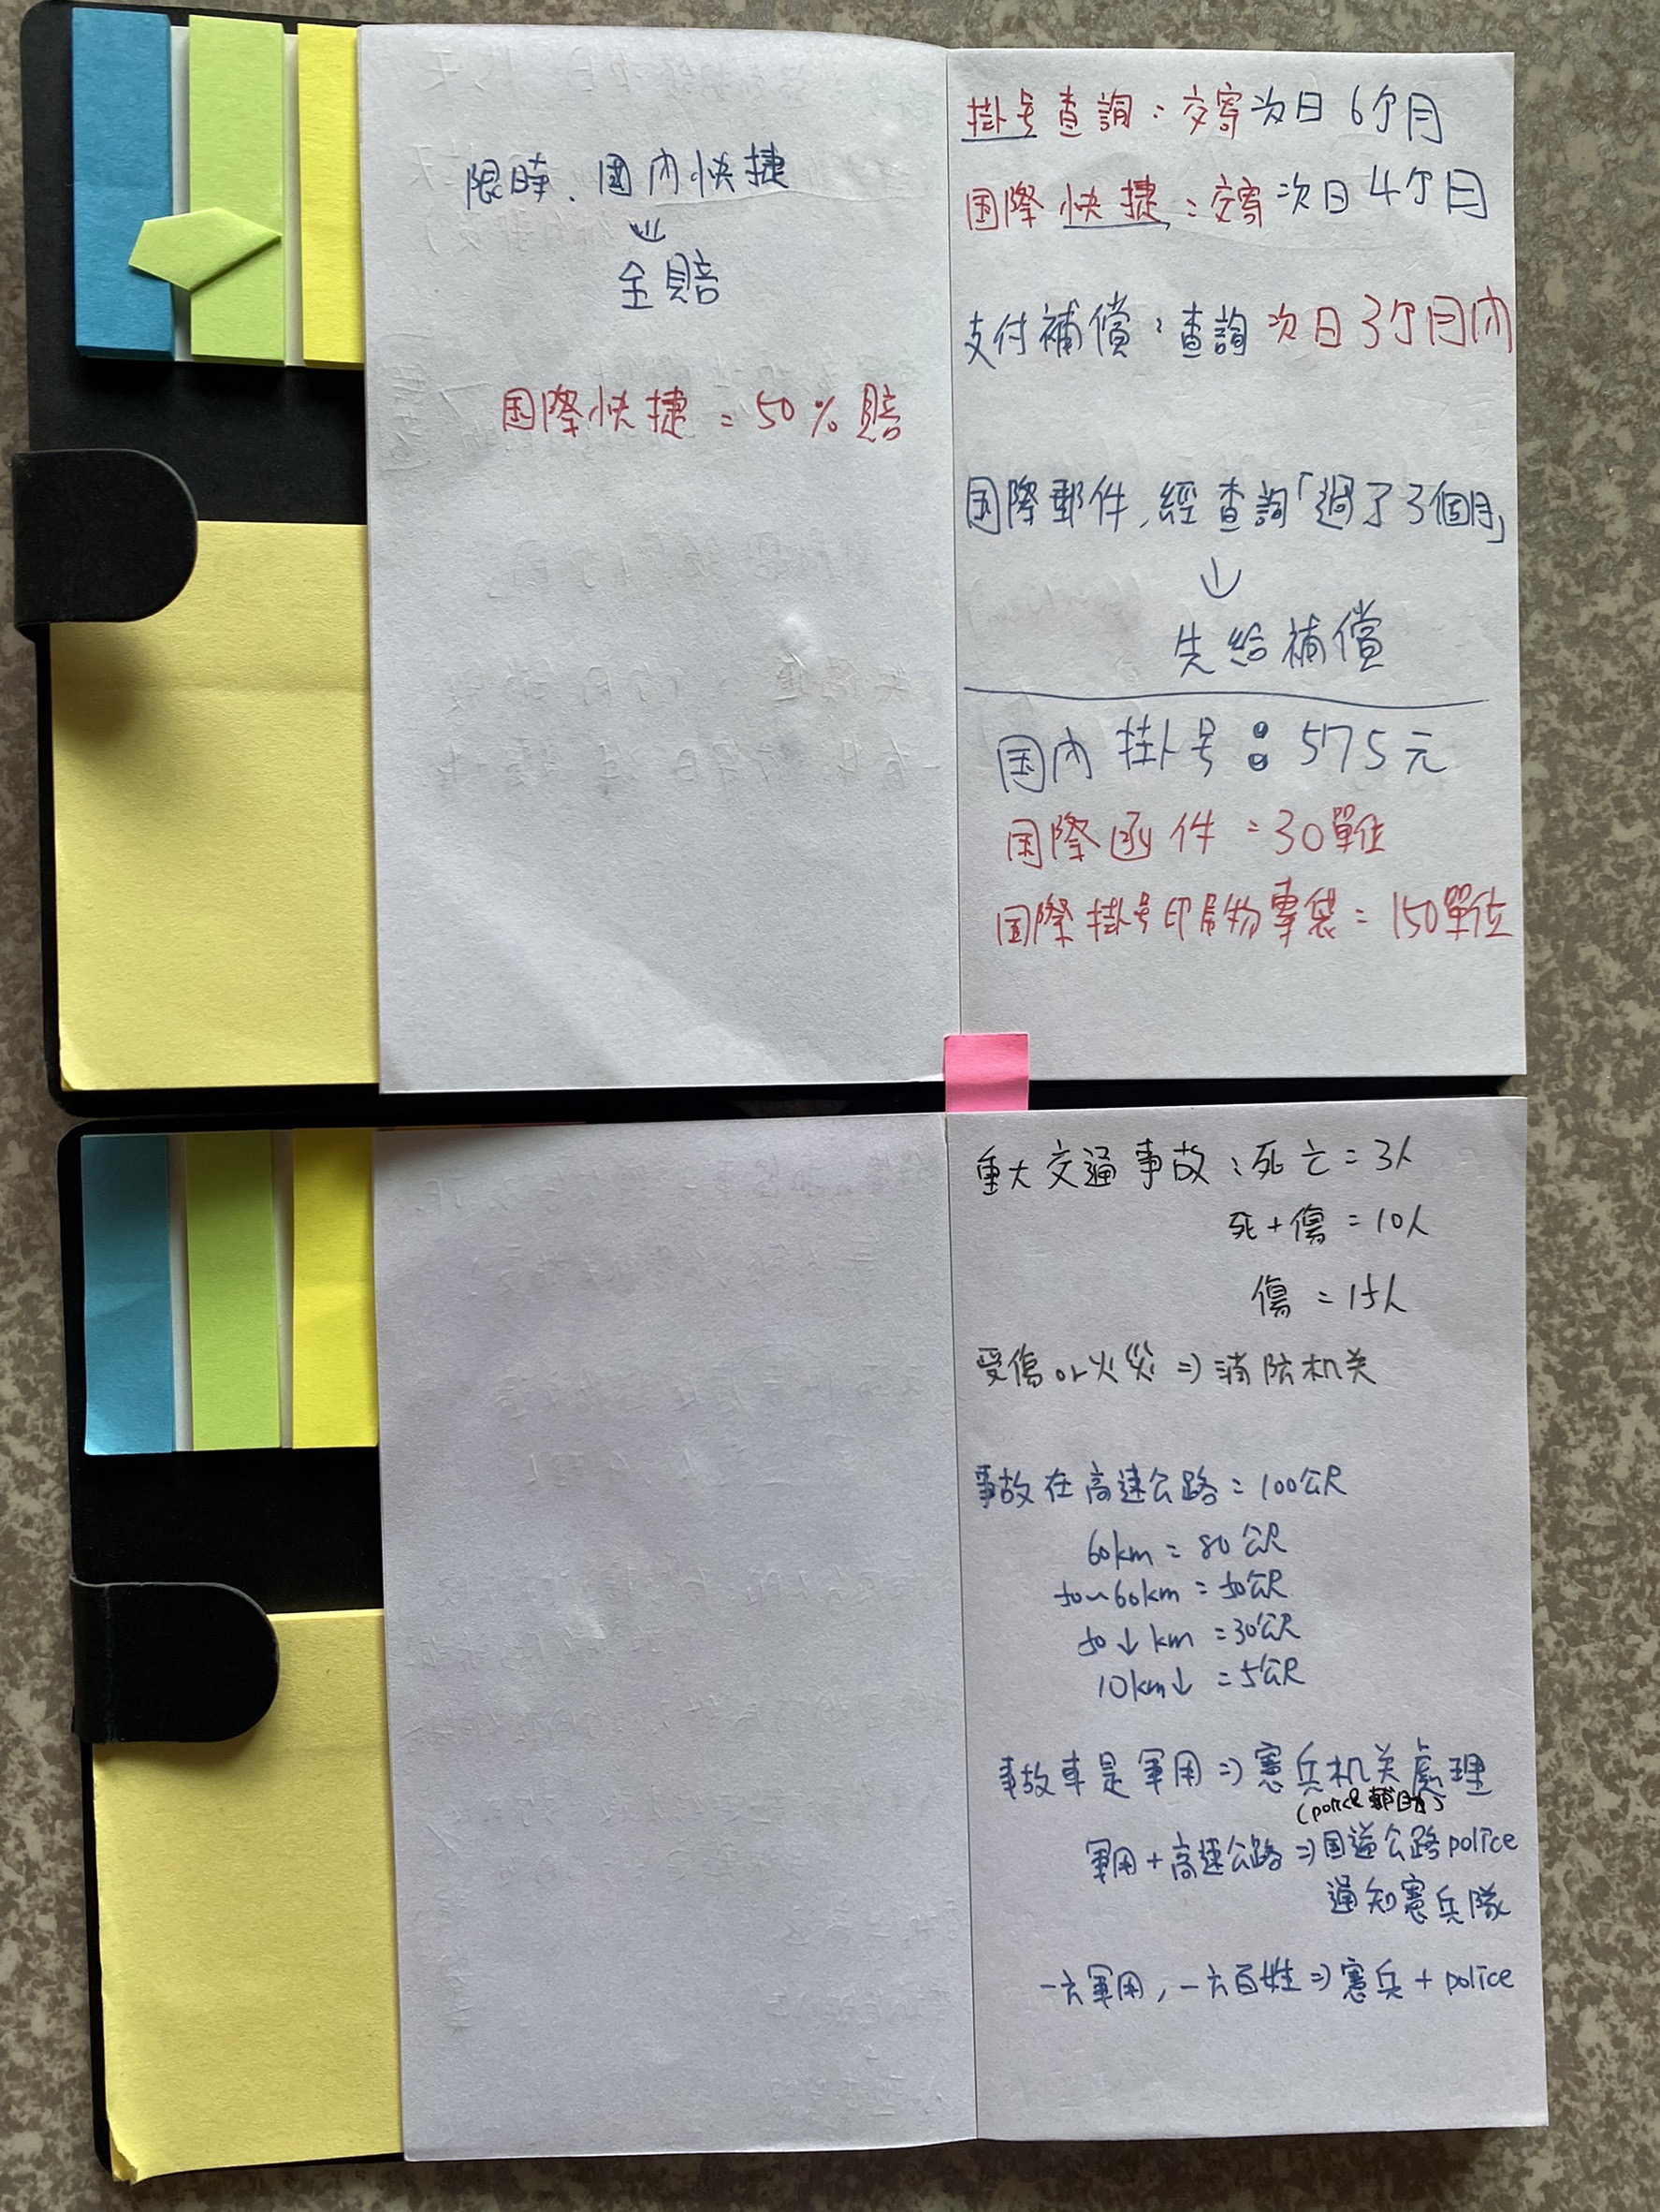 限時、國內快捷
↓
全賠
国際快捷=50%賠
掛号查詢:交寄次日6个月
国際快捷:交寄次日4个月
支付補償:查詢次日3个月內
国際郵件,經查詢「過了3個月」
↓
先給補償
国内掛号:575元
国際函件=30單位
国際掛号印刷物專袋=150單位
重大交通事故:死亡=3人
死+傷=10人
傷=15人
受傷or火災⇒消防机关
事故在高速公路=100公尺
60km=80公尺
50~60km=50公尺
50↓km=30公尺
10km↓=5公尺
事故車是軍用⇒憲兵机关處理
(police輔助)
軍用+高速公路⇒国道公路police
通知憲兵隊
一方軍用,一方百姓⇒憲兵+police